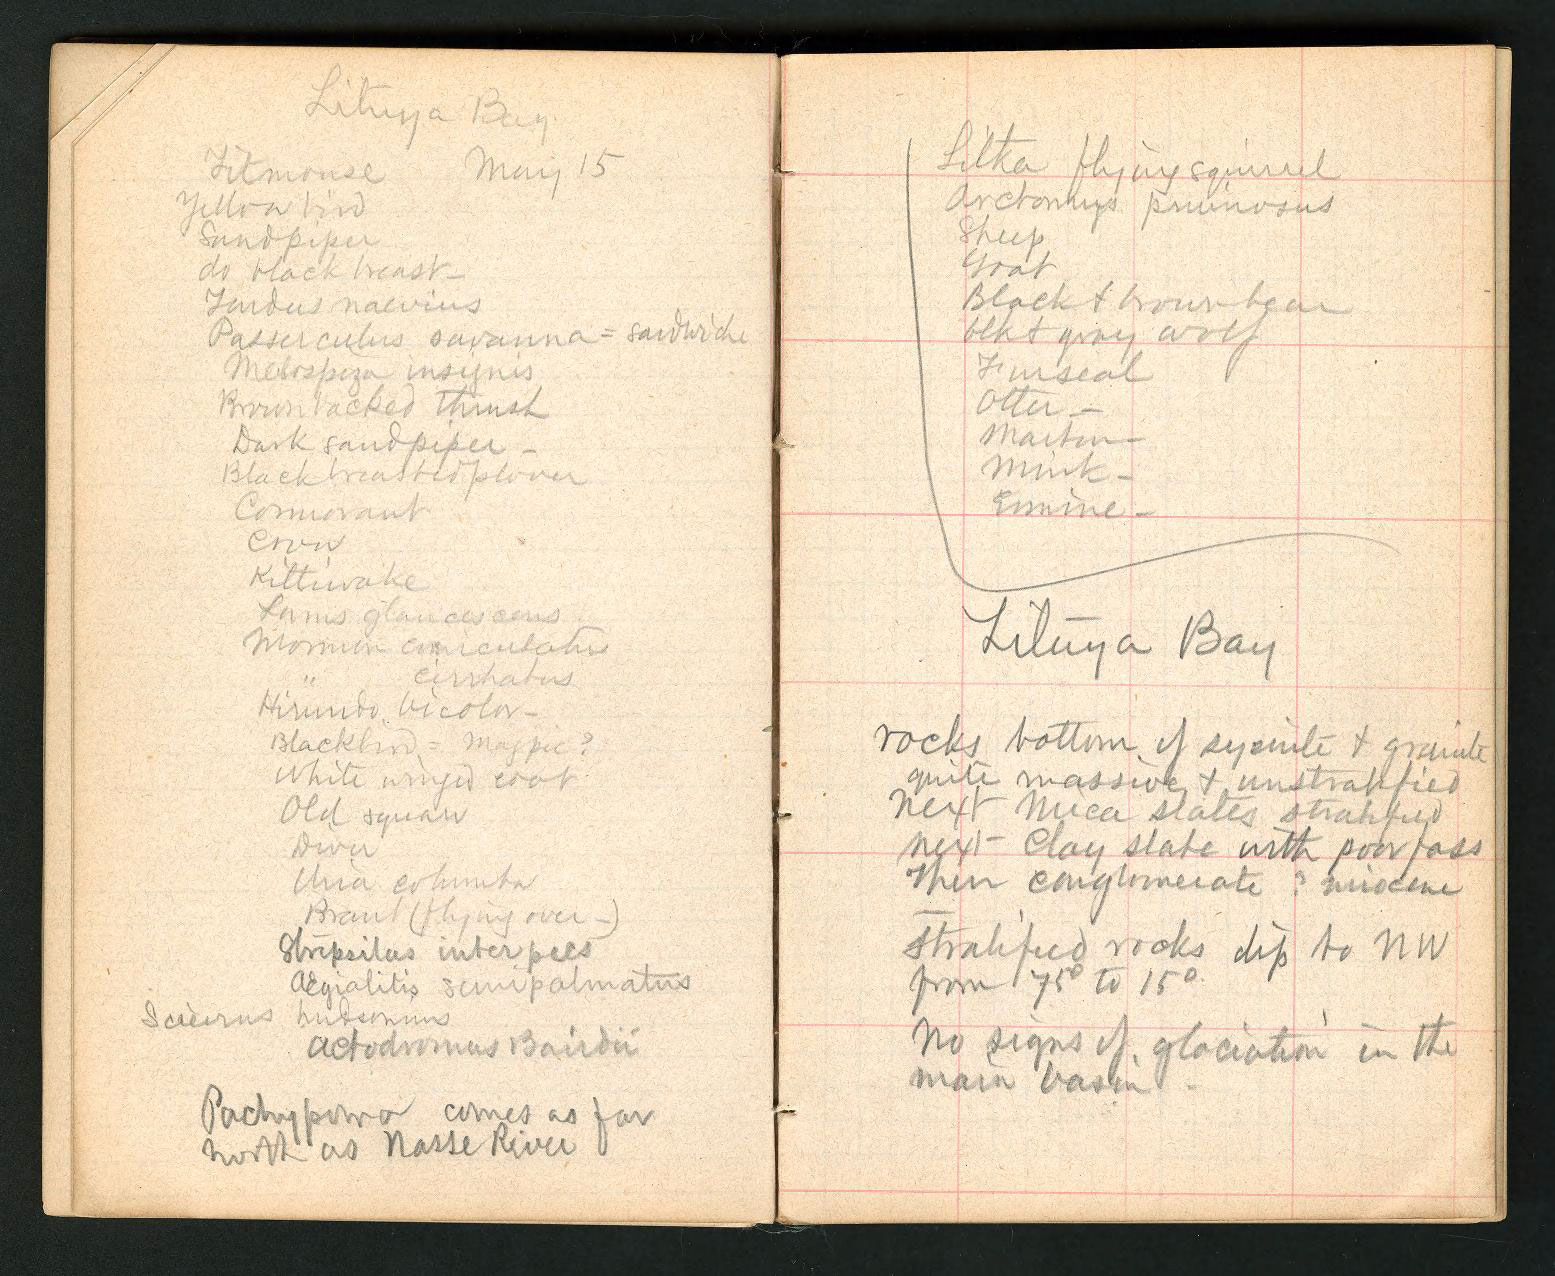 Lituya Bay
Titmouse May 15
Yellow bird
Sandpiper
do black breast -
Turdus naevius
Passerculus savanna = sandwiche
Melospiza insignis
Brown backed thrush
Dark sandpiper -
Black breasted plover
Cormorant
Crow
Kittiwake
Larus glaucescens
Mormon corniculatus
" cirrhatus
Hirundo bicolor -
Blackbird = Magpie?
White winged coot
Old squaw
Diver
Uria columba
Brant (flying over -)
Strepsilas interpres
Aegialitis semipalmatus
Sciurus hudsonius
Actodromus Bairdii
comes as far
north as Nasse River
Sitka flying squirrel
Arctomys pruinosus
Sheep
Goat
Black & brown bear
blk & gray wolf
Fur seal
Otter -
Marten -
Mink -
Ermine -
Lituya Bay
rocks bottom of syenite & granite
quite massive & unstratified
Next Mica slates stratified
next - Clay slate with poor foss
Then conglomerate ? miocene
Stratified rocks dip to NW
from 75° to 15°
No signs of glaciation in the
main basin -